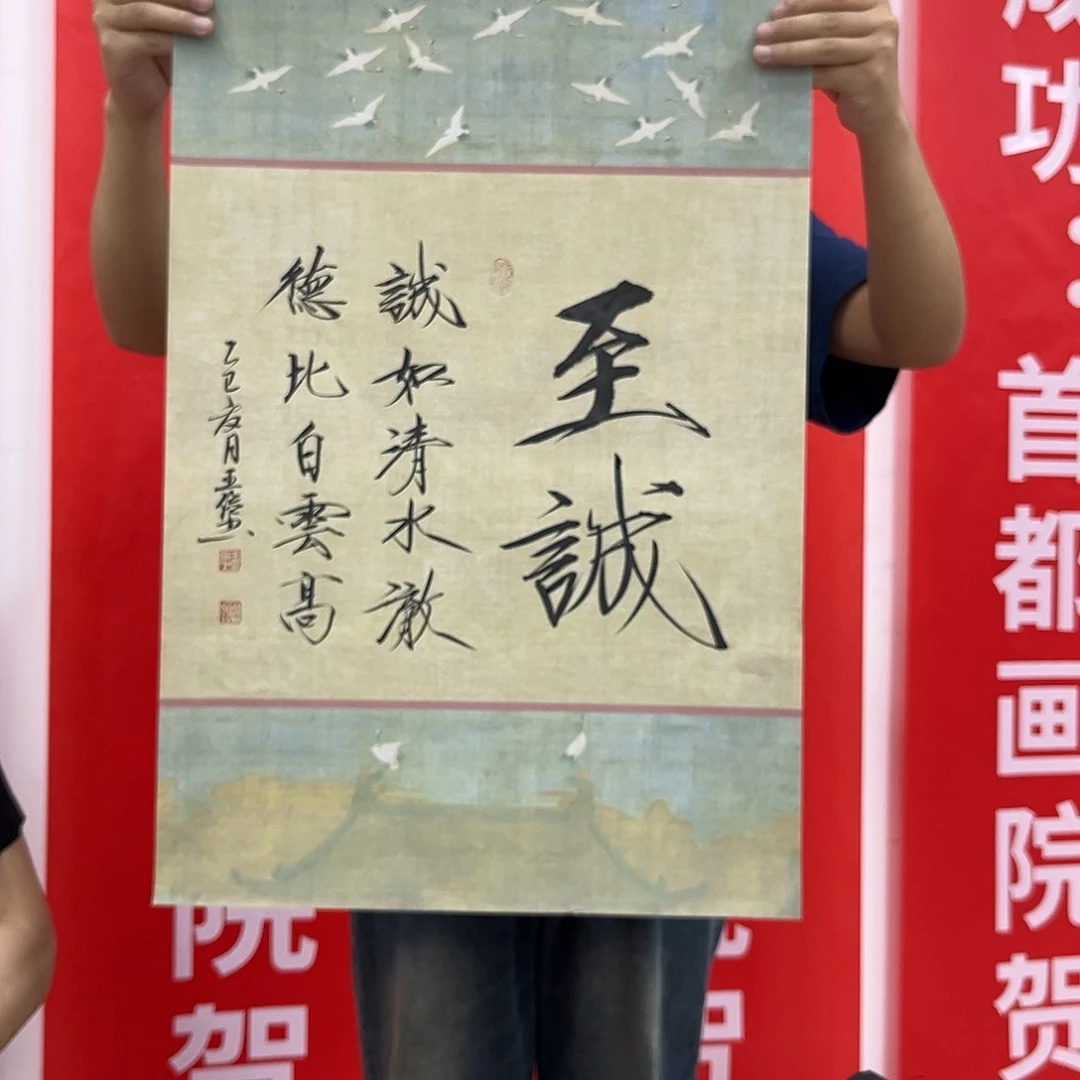 至誠
誠如清水澈
德比白雲高
乙巳夏月王
成功：首都画院贺
院贺
院贺